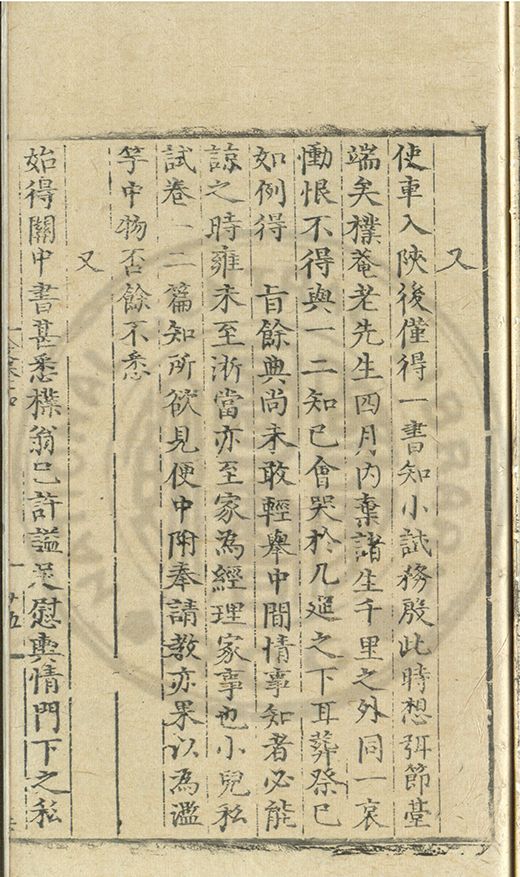 又
使車入陜後僅得一書知小試務殷此時想弭節臺
端矣樸菴老先生四月內棄諸生千里之外同一哀
慟恨不得與一二知已會哭於几筵之下耳葬祭已
如例得　旨餘典尚未敢輕舉中間情事知者必能
諒之時雍未至浙當亦至家為經理家事也小兒私
試卷一二篇知所欲見便中附奉請教亦果以為濫
竽中物否餘不悉
又
始得關中書甚悉樸翁已許謚足慰輿情門下之私